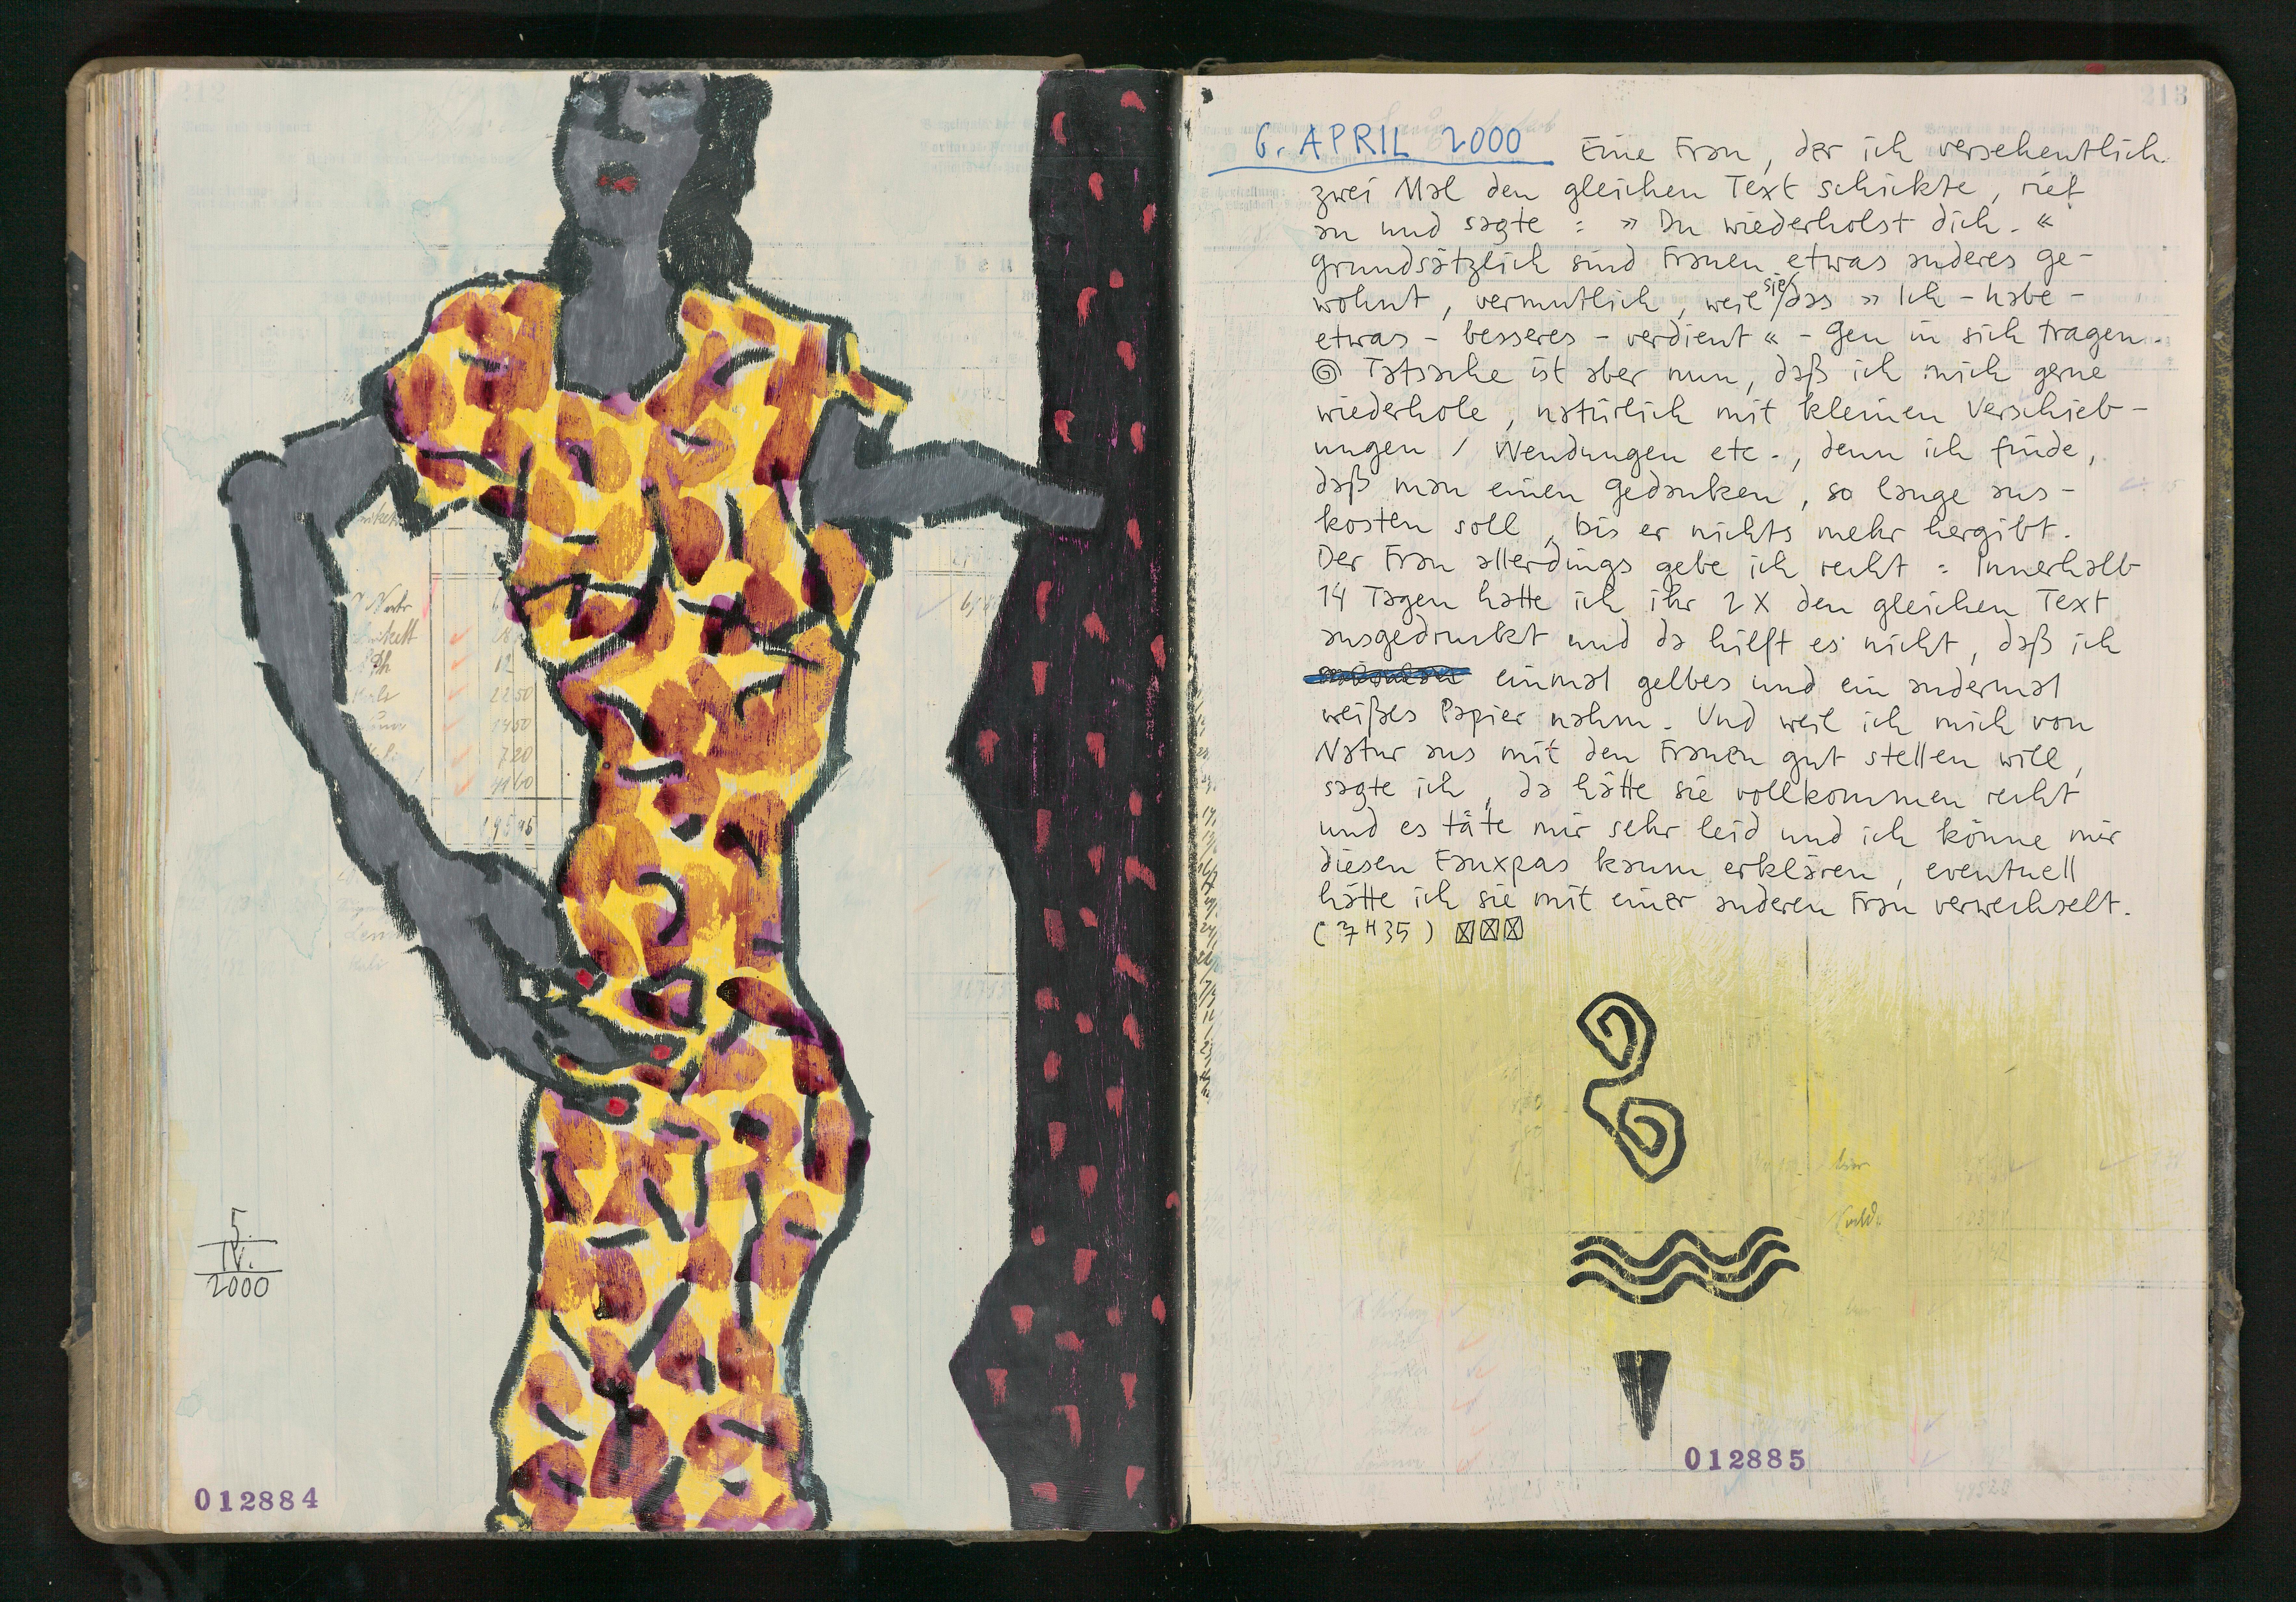 212
5.
IV.
2000
012884
213
6. APRIL 2000 Eine Frau, der ich versehentlich
zwei Mal den gleichen Text schickte, rief
an und sagte : » Du wiederholst dich. «
grundsätzlich sind Frauen etwas anderes ge-
wohnt, vermutlich, weil sie das » Ich - habe -
etwas - besseres - verdient « - Gen in sich tragen.
Tatsache ist aber nun, daß ich mich gerne
wiederhole, natürlich mit kleinen Verschieb-
ungen / Wendungen etc., denn ich finde,
daß man einen Gedanken, so lange aus-
kosten soll, bis er nichts mehr hergibt.
Der Frau allerdings gebe ich recht : Innerhalb
14 Tagen hatte ich ihr 2 X den gleichen Text
ausgedruckt und da hilft es nicht, daß ich
einmal gelbes und ein andermal
weißes Papier nahm. Und weil ich mich von
Natur aus mit den Frauen gut stellen will,
sagte ich, da hätte sie vollkommen recht
und es täte mir sehr leid und ich könne mir
diesen Fauxpas kaum erklären, eventuell
hätte ich sie mit einer anderen Frau verwechselt.
(7 H 35)
012885